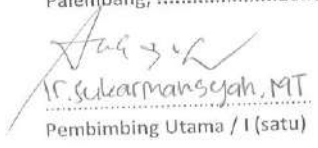 Palembang, ....................
Ir. Sukarmansyah, MT
Pembimbing Utama / I (satu)